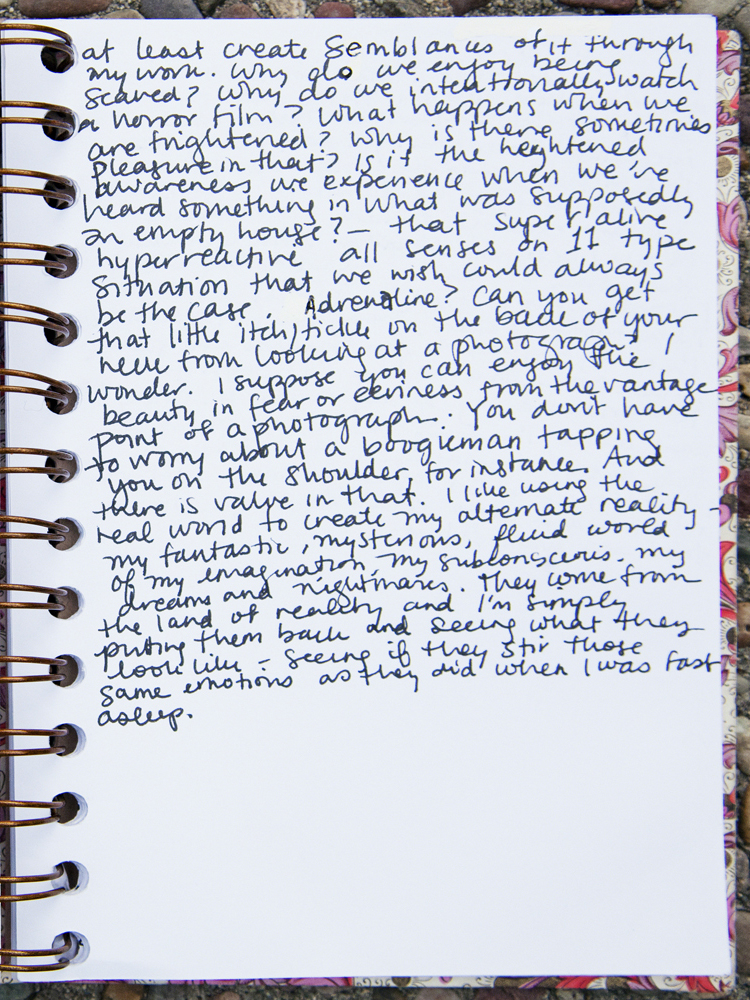 at least create semblances of it through
my work. Why do we enjoy being
scared? Why do we intentionally watch
a horror film? What happens when we
are frightened? Why is there sometimes
pleasure in that? Is it the heightened
awareness we experience when we've
heard something in what was supposedly
an empty house? – that super alive
hyperreactive all senses on 11 type
situation that we wish could always
be the case. Adrenaline? Can you get
that little itch/tickle on the back of your
neck from looking at a photograph? I
wonder. I suppose you can enjoy the
beauty in fear or eeriness from the vantage
point of a photograph. You don't have
to worry about a boogieman tapping
you on the shoulder, for instance. And
there is value in that. I like using the
real world to create my alternate reality –
my fantastic, mysterious, fluid world
of my imagination, my subconscious. my
dreams and nightmares. They come from
the land of reality and I'm simply
putting them back and seeing what they
look like – seeing if they stir those
same emotions as they did when I was fast
asleep.